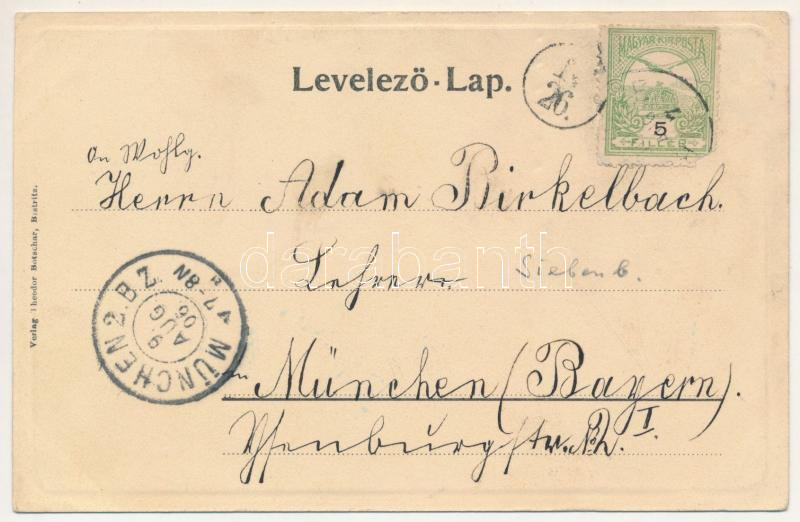 Levelező-Lap.
MAGYAR KIR. POSTA
5
FILLÉR
26.
An Wohlg.
Herrn Adam Birkelbach.
Lehrer
Siebenb.
in München (Bayern).
Ysenburgstr. I.
MÜNCHEN 2.B.Z.
9
AUG
06
7-8N
Verlag Theodor Botschar, Bistritz.
darabanth